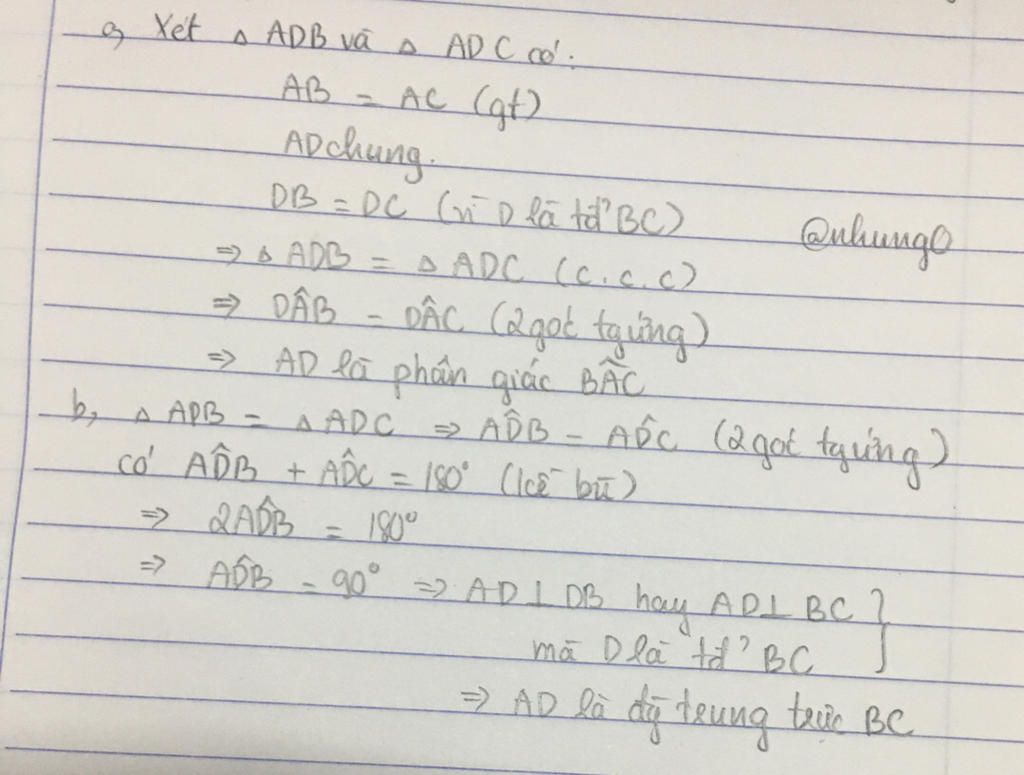 a, Xét △ ADB và △ ADC có:
AB = AC (gt)
AD chung.
DB = DC (vì D là tđ' BC)
@nhung0
=> △ ADB = △ ADC (c.c.c)
=> DÂB = DÂC (2 góc tg ứng)
=> AD là phân giác BÂC
b, △ ADB = △ ADC => AD̂B = AD̂C (2 góc tg ứng)
có AD̂B + AD̂C = 180° (kề bù)
=> 2AD̂B = 180°
=> AD̂B = 90° => AD ⊥ DB hay AD ⊥ BC }
mà D là tđ' BC
=> AD là đg trung trực BC